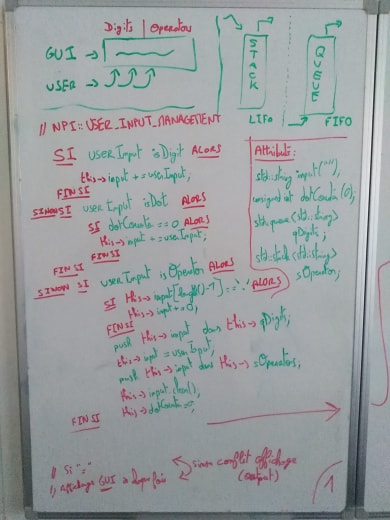 Digits | Operators
GUI →
USER →
STACK
LIFO
QUEUE
FIFO
// NPI::USER_INPUT_MANAGEMENT
SI userInput isDigit ALORS
this→input += userInput;
FINSI
SINON SI userInput isDot ALORS
SI dotCounter == 0 ALORS
this→input += userInput;
FINSI
FINSI
SINON SI userInput isOperator ALORS
SI this→input[length()-1] == '.' ALORS
this→input += 0;
FINSI
push this→input dans this→qDigits;
this→input = userInput;
push this→input dans this→sOperators;
this→input.clear();
this→dotCounter = 0;
FINSI
Attributs:
std::string input("");
unsigned int dotCounter(0);
std::queue<std::string>
qDigits;
std::stack<std::string>
sOperators;
// Si "="
// Affichage GUI
sinon conflit affichage
(output)
1